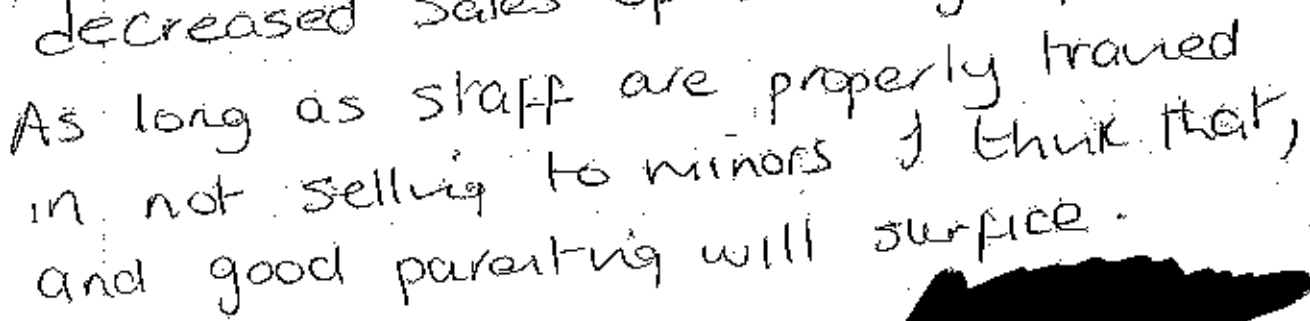 decreased sales
As long as staff are properly trained
in not selling to minors I think that,
and good parenting will surfice.